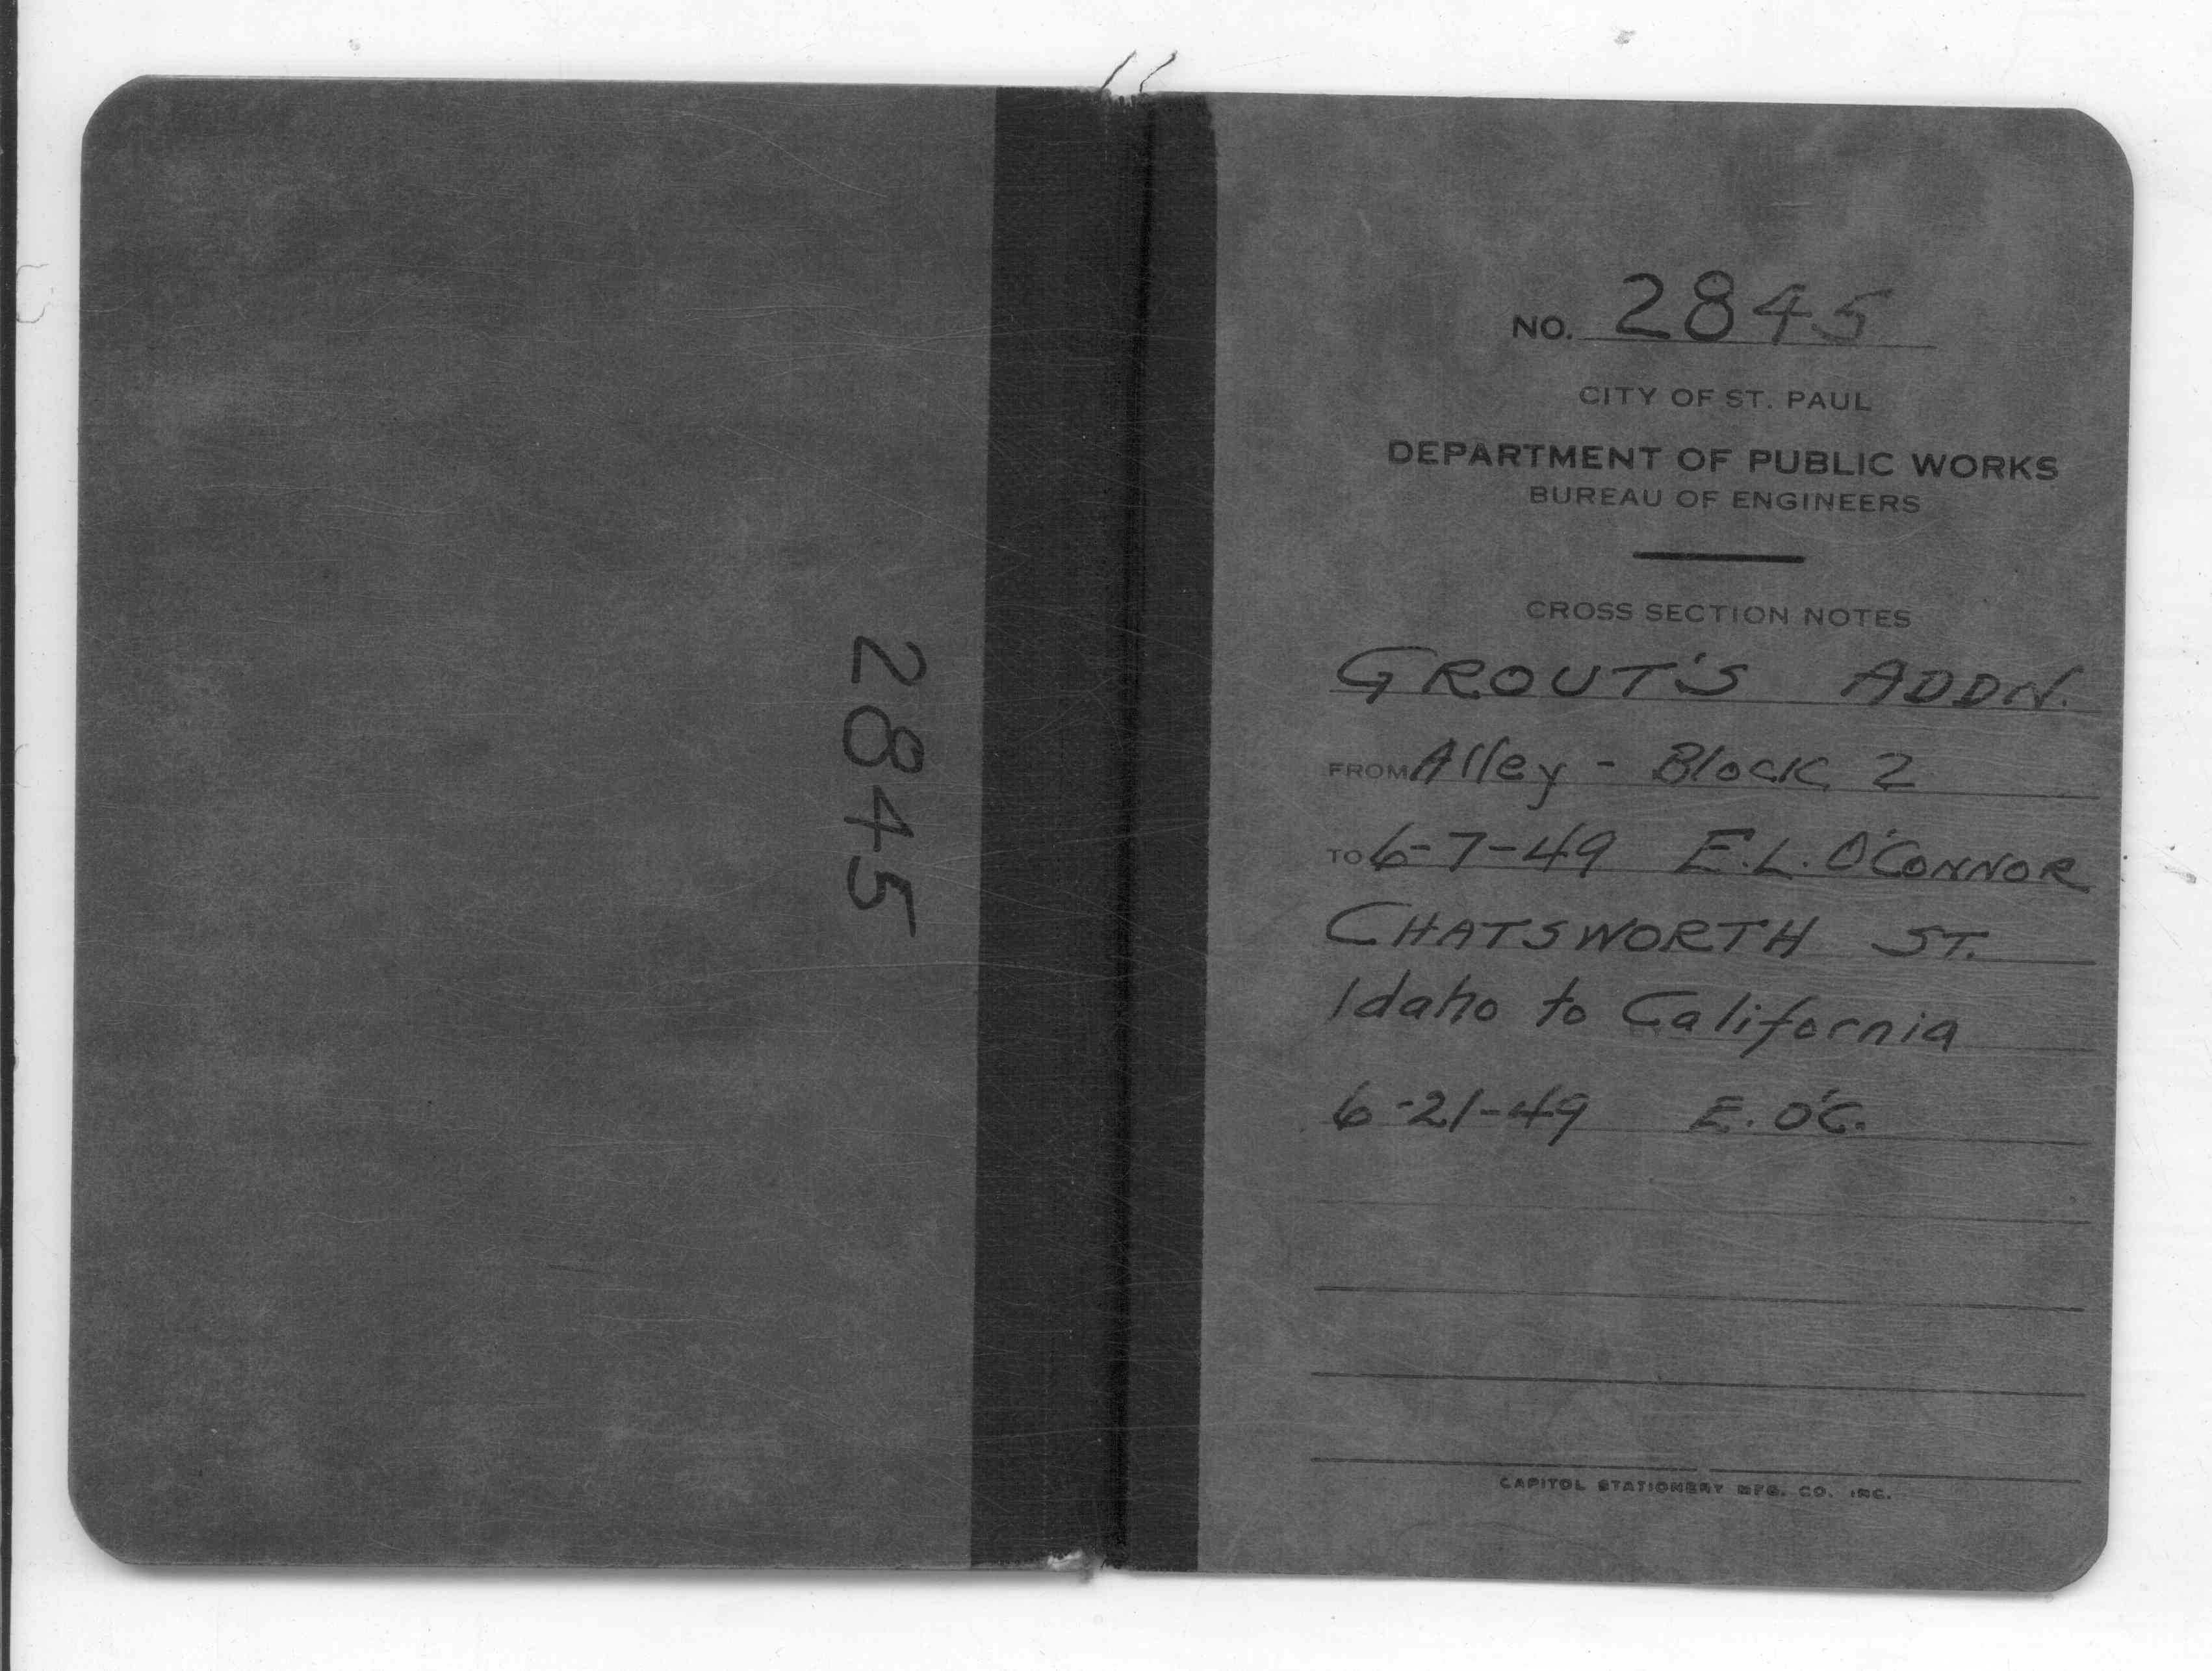 2845
NO. 2845
CITY OF ST. PAUL
DEPARTMENT OF PUBLIC WORKS
BUREAU OF ENGINEERS
CROSS SECTION NOTES
GROUT'S ADDN.
FROM Alley - Block 2
TO 6-7-49 E.L. O'CONNOR
CHATSWORTH ST.
Idaho to California
6-21-49 E. O'C.
CAPITOL STATIONERY MFG. CO. INC.